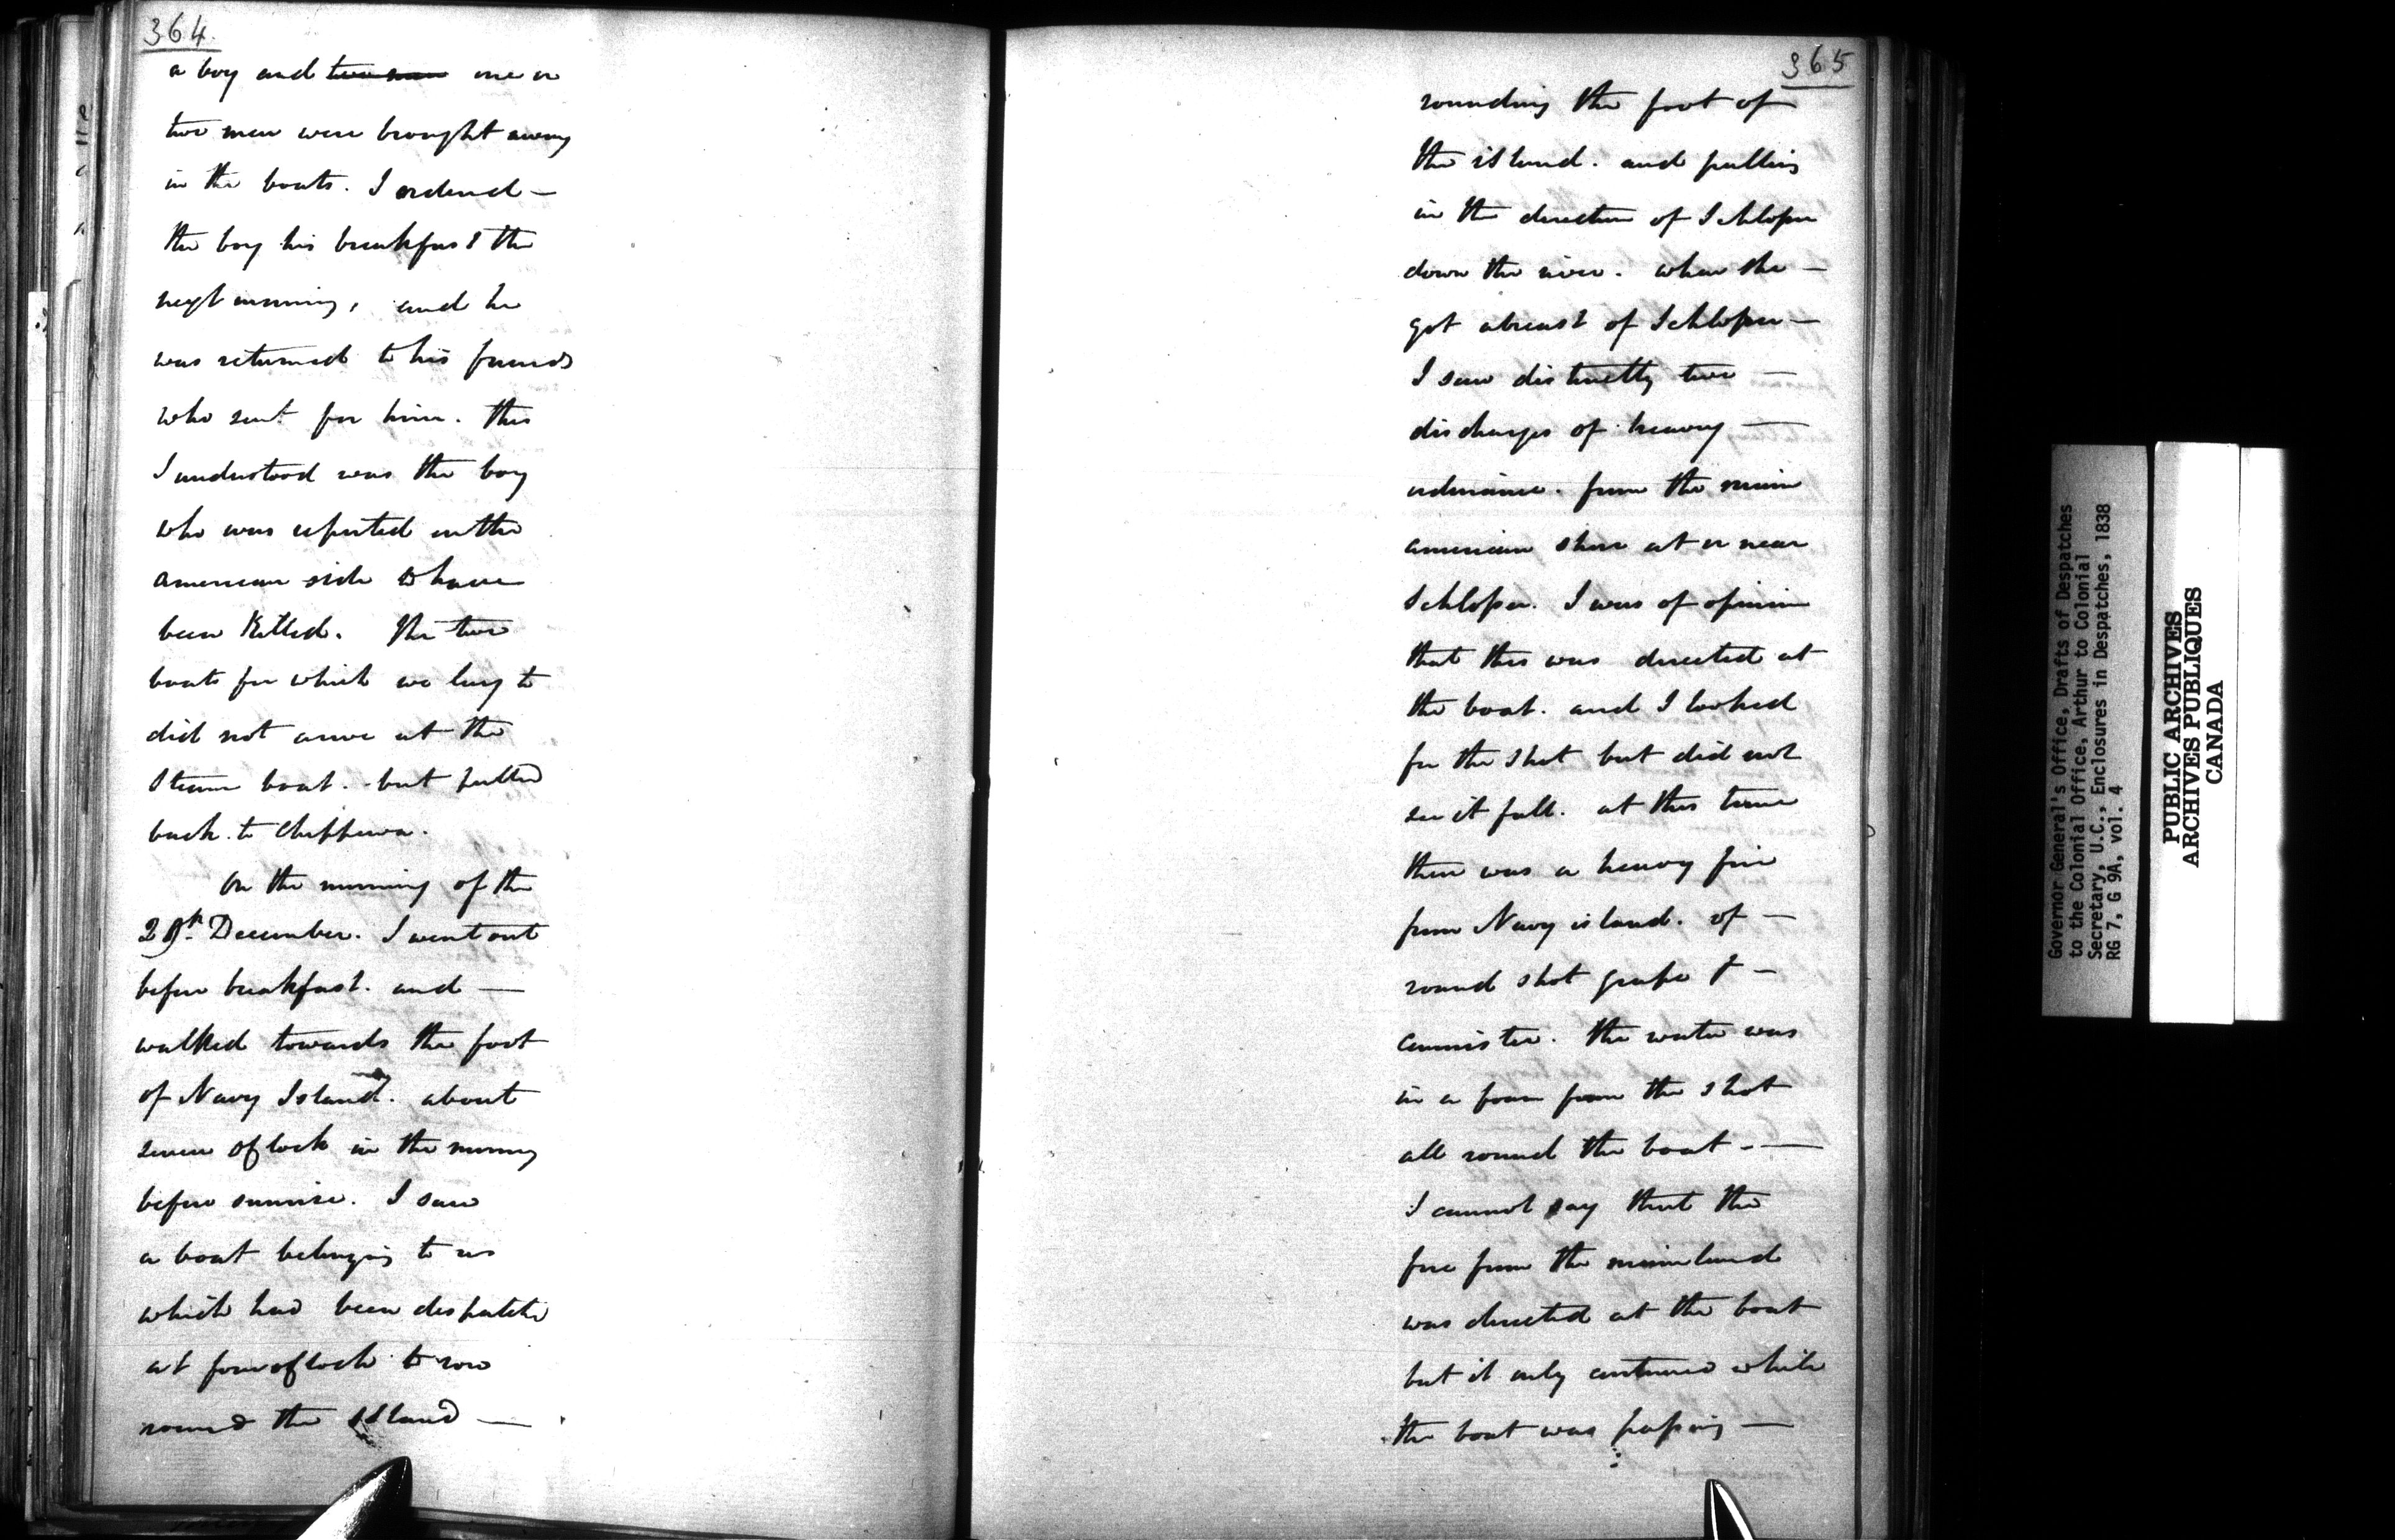 364.
a boy and two men one or
two men were brought away
in the boats. I ordered —
the boy his breakfast the
next morning, and he
was returned to his friends
who sent for him. This
I understood was the boy
who was reported on the
American side to have
been Killed. The two
boats for which we lay to
did not arrive at the
Steam boat. but pulled
back to Chippewa.
On the morning of the
29th December. I went out
before breakfast. and —
walked towards the foot
of Navy Island. about
seven oClock in the morning
before sunrise. I saw
a boat belonging to us
which had been despatched
at four oClock to row
round the Island —
365
rounding the foot of
the island. and pulling
in the direction of Schlosser
down the river. when she —
got abreast of Schlosser —
I saw distinctly two —
discharges of heavy —
ordnance. from the main
american shore at or near
Schlosser. I was of opinion
that this was directed at
the boat. and I looked
for the shot but did not
see it fall. at this time
there was a heavy fire
from Navy island. of —
round shot grape & —
cannister. The water was
in a foam from the shot
all round the boat - —
I cannot say that the
fire from the mainland
was directed at the boat
but it only continued while
the boat was passing —
Governor General's Office, Drafts of Despatches
to the Colonial Office, Arthur to Colonial
Secretary, U.C., Enclosures in Despatches, 1838
RG 7, G 9A, vol. 4
PUBLIC ARCHIVES
ARCHIVES PUBLIQUES
CANADA